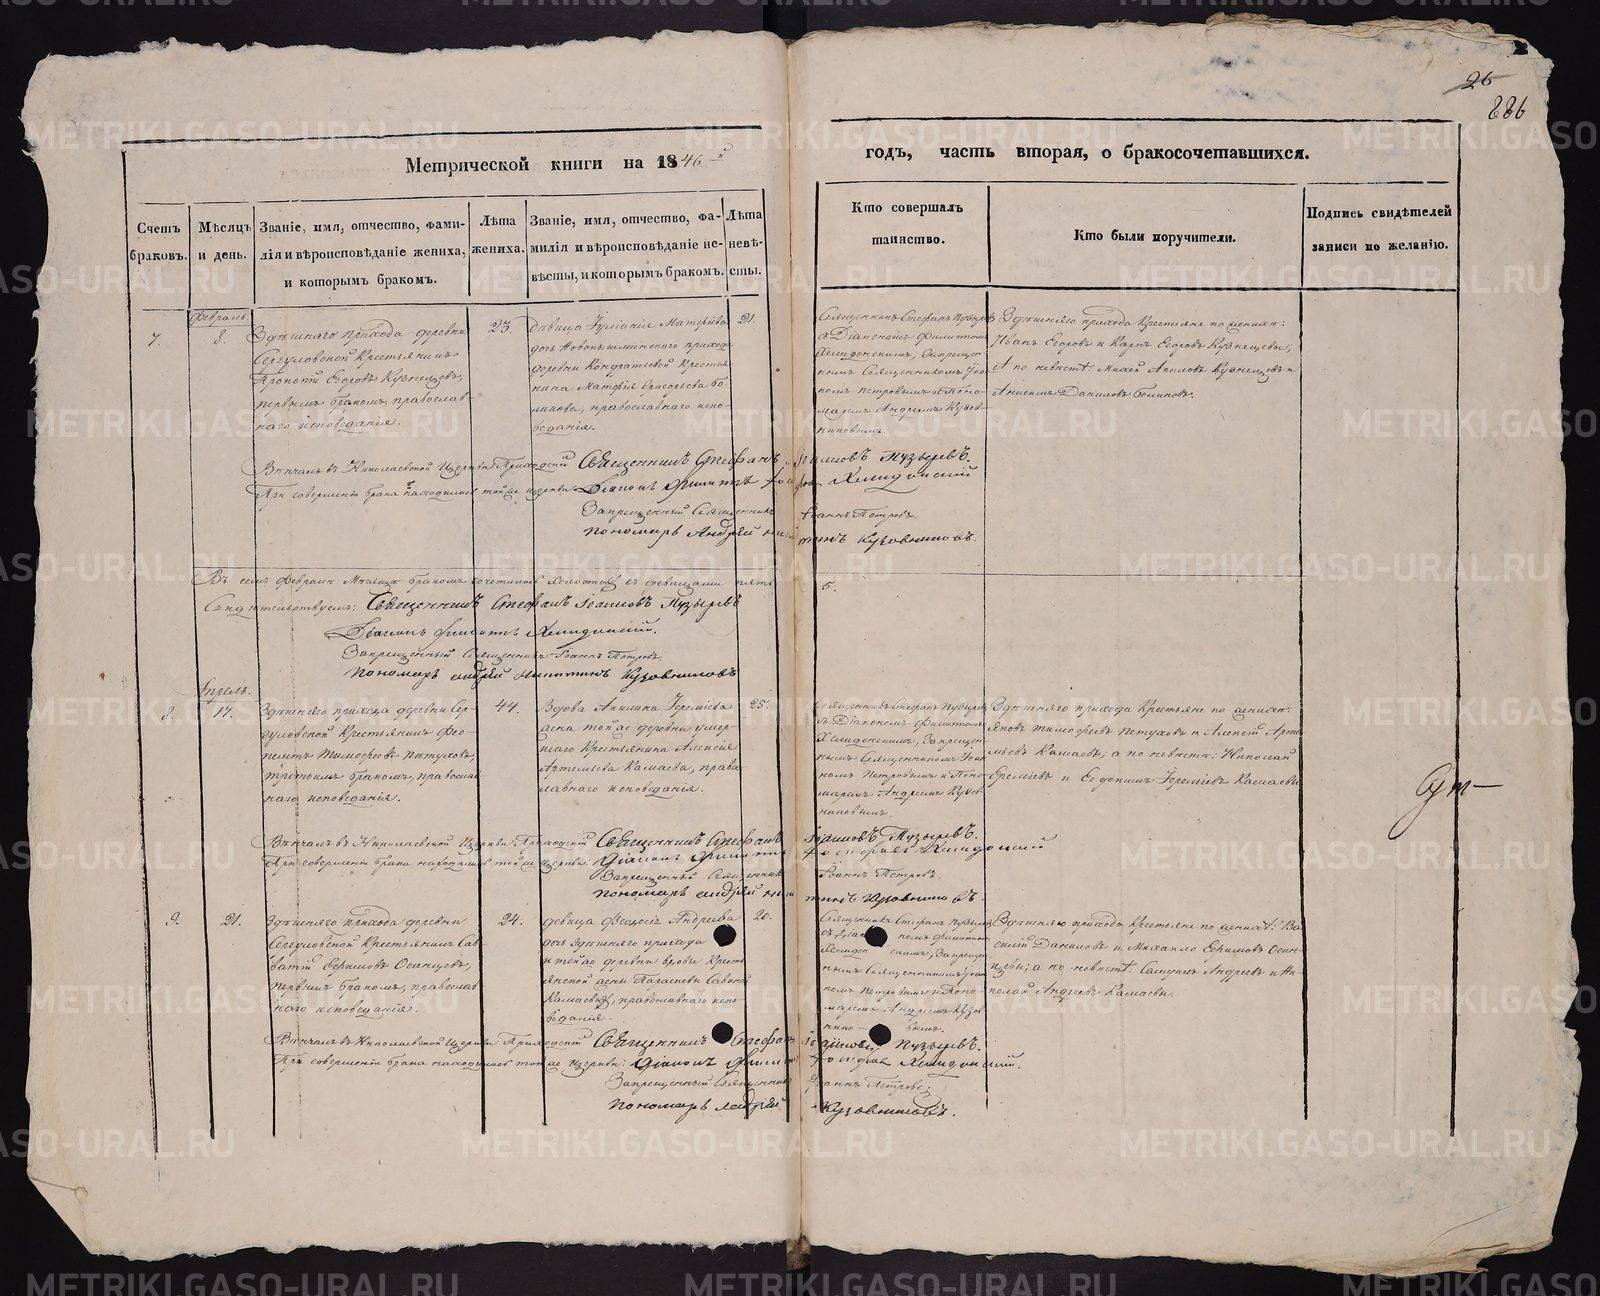 26
226
Метрической книги на 1846 й
годъ, часть вторая, о бракосочетавшихся.
Счетъ
браковъ.
Мѣсяцъ
и день.
Званіе, имя, отчество, фами-
лія и вѣроисповѣданіе жениха,
и которымъ бракомъ.
Лѣта
жениха.
Званіе, имя, отчество, фа-
милія и вѣроисповѣданіе не-
вѣсты, и которымъ бракомъ.
Лѣта
невѣ-
сты.
Кто совершалъ
таинство.
Кто были поручители.
Подпись свидѣтелей
записи по желанію.
Февраль.
7.
8.
Здѣшняго прихода деревни
Крестьянинъ
Егоровъ Кузнецовъ,
первымъ бракомъ, православ-
наго исповеданія.
23.
Дѣвица
дочь прихода
деревни Кондратьевой Крестья-
нина
православнаго испо-
веданія.
21.
Священникъ Стефанъ Пузырев
съ Діакономъ Филиппомъ
Хелидонскимъ, Запрещен-
нымъ Священникомъ Іоан-
номъ Петровымъ и Поно-
маремъ Андреемъ Кузов-
никовымъ.
Здѣшняго прихода Крестьяне по женихѣ:
Иванъ Егоровъ и Егоровъ Кузнецовы,
А по невѣстѣ: Кузнецовъ и
Даниловъ
Вѣнчалъ въ Николаевской Церкви Приходскій Священникъ Стефанъ Іоанновъ Пузыревъ.
При совершеніи брака находились той же церкви: Діаконъ Филиппъ Хелидонскій
Запрещенный Священникъ Іоаннъ Петровъ.
Пономарь Андрей Никитинъ Кузовниковъ.
Въ семъ Февралѣ Мѣсяцѣ бракомъ сочетались Холостыхъ съ девицами пять 5.
Свидѣтельствуемъ: Священникъ Стефанъ Іоанновъ Пузыревъ
Діаконъ Филиппъ Хелидонскій.
Запрещенный Священникъ Іоаннъ Петровъ
Пономарь Андрей Никитинъ Кузовниковъ
Апрель.
8.
17.
Здѣшняго прихода деревни Сер-
Крестьянинъ
Тимофеевъ Пѣтуховъ,
третьимъ бракомъ, православ-
наго исповеданія.
44.
Вдова Акилина Іереміева
жена той же деревни умер-
шаго Крестьянина Алексія
Артемьева Камаева, право-
славнаго исповеданія.
25.
Священникъ Стефанъ Пузырев
съ Діакономъ Филиппомъ
Хелидонскимъ, Запрещен-
нымъ Священникомъ Іоан-
номъ Петровымъ и Поно-
маремъ Андреемъ Кузов-
никовымъ.
Здѣшняго прихода Крестьяне по женихѣ:
Яковъ Тимофеевъ Петуховъ и Алексѣй Арте-
мьевъ Камаевъ, а по невѣстѣ: Николай
Еремѣевъ и Евдокимъ Іереміевъ Камаевы
Вѣнчалъ въ Николаевской Церкви Приходскій Священникъ Стефанъ Іоанновъ Пузыревъ.
При совершеніи брака находились той же церкви: Діаконъ Филиппъ Хелидонскій
Запрещенный Священникъ Іоаннъ Петровъ.
Пономарь Андрей Никитинъ Кузовниковъ.
9.
21.
Здѣшняго прихода деревни
Крестьянинъ Сав-
ватій Ефимовъ Осинцевъ,
первымъ бракомъ, православ-
наго исповеданія.
24.
девица Феодосія Андреева
дочь Здѣшняго прихода
и той же деревни вдовы Кресть-
янской жены Параскевы Савиной
Камаевой, православнаго испо-
веданія.
20.
Священникъ Стефанъ Пузырев
съ Діакономъ Филиппомъ
Хелидонскимъ, Запрещен-
нымъ Священникомъ Іоан-
номъ Петровымъ и Поно-
маремъ Андреемъ Кузов-
нико-вымъ.
Здѣшняго прихода Крестьяне по женихѣ: Ва-
силій Даниловъ и Михайло Ефимовъ Осин-
цевы; а по невѣстѣ: Андреевъ и Ни-
колай Андреевъ Камаевы.
Вѣнчалъ въ Николаевской Церкви Приходскій Священникъ Стефанъ Іоанновъ Пузыревъ.
При совершеніи брака находились той же церкви: Діаконъ Филиппъ Хелидонскій.
Запрещенный Священникъ Іоаннъ Петровъ.
Пономарь Андрей Кузовниковъ.
METRIKI.GASO-URAL.RU